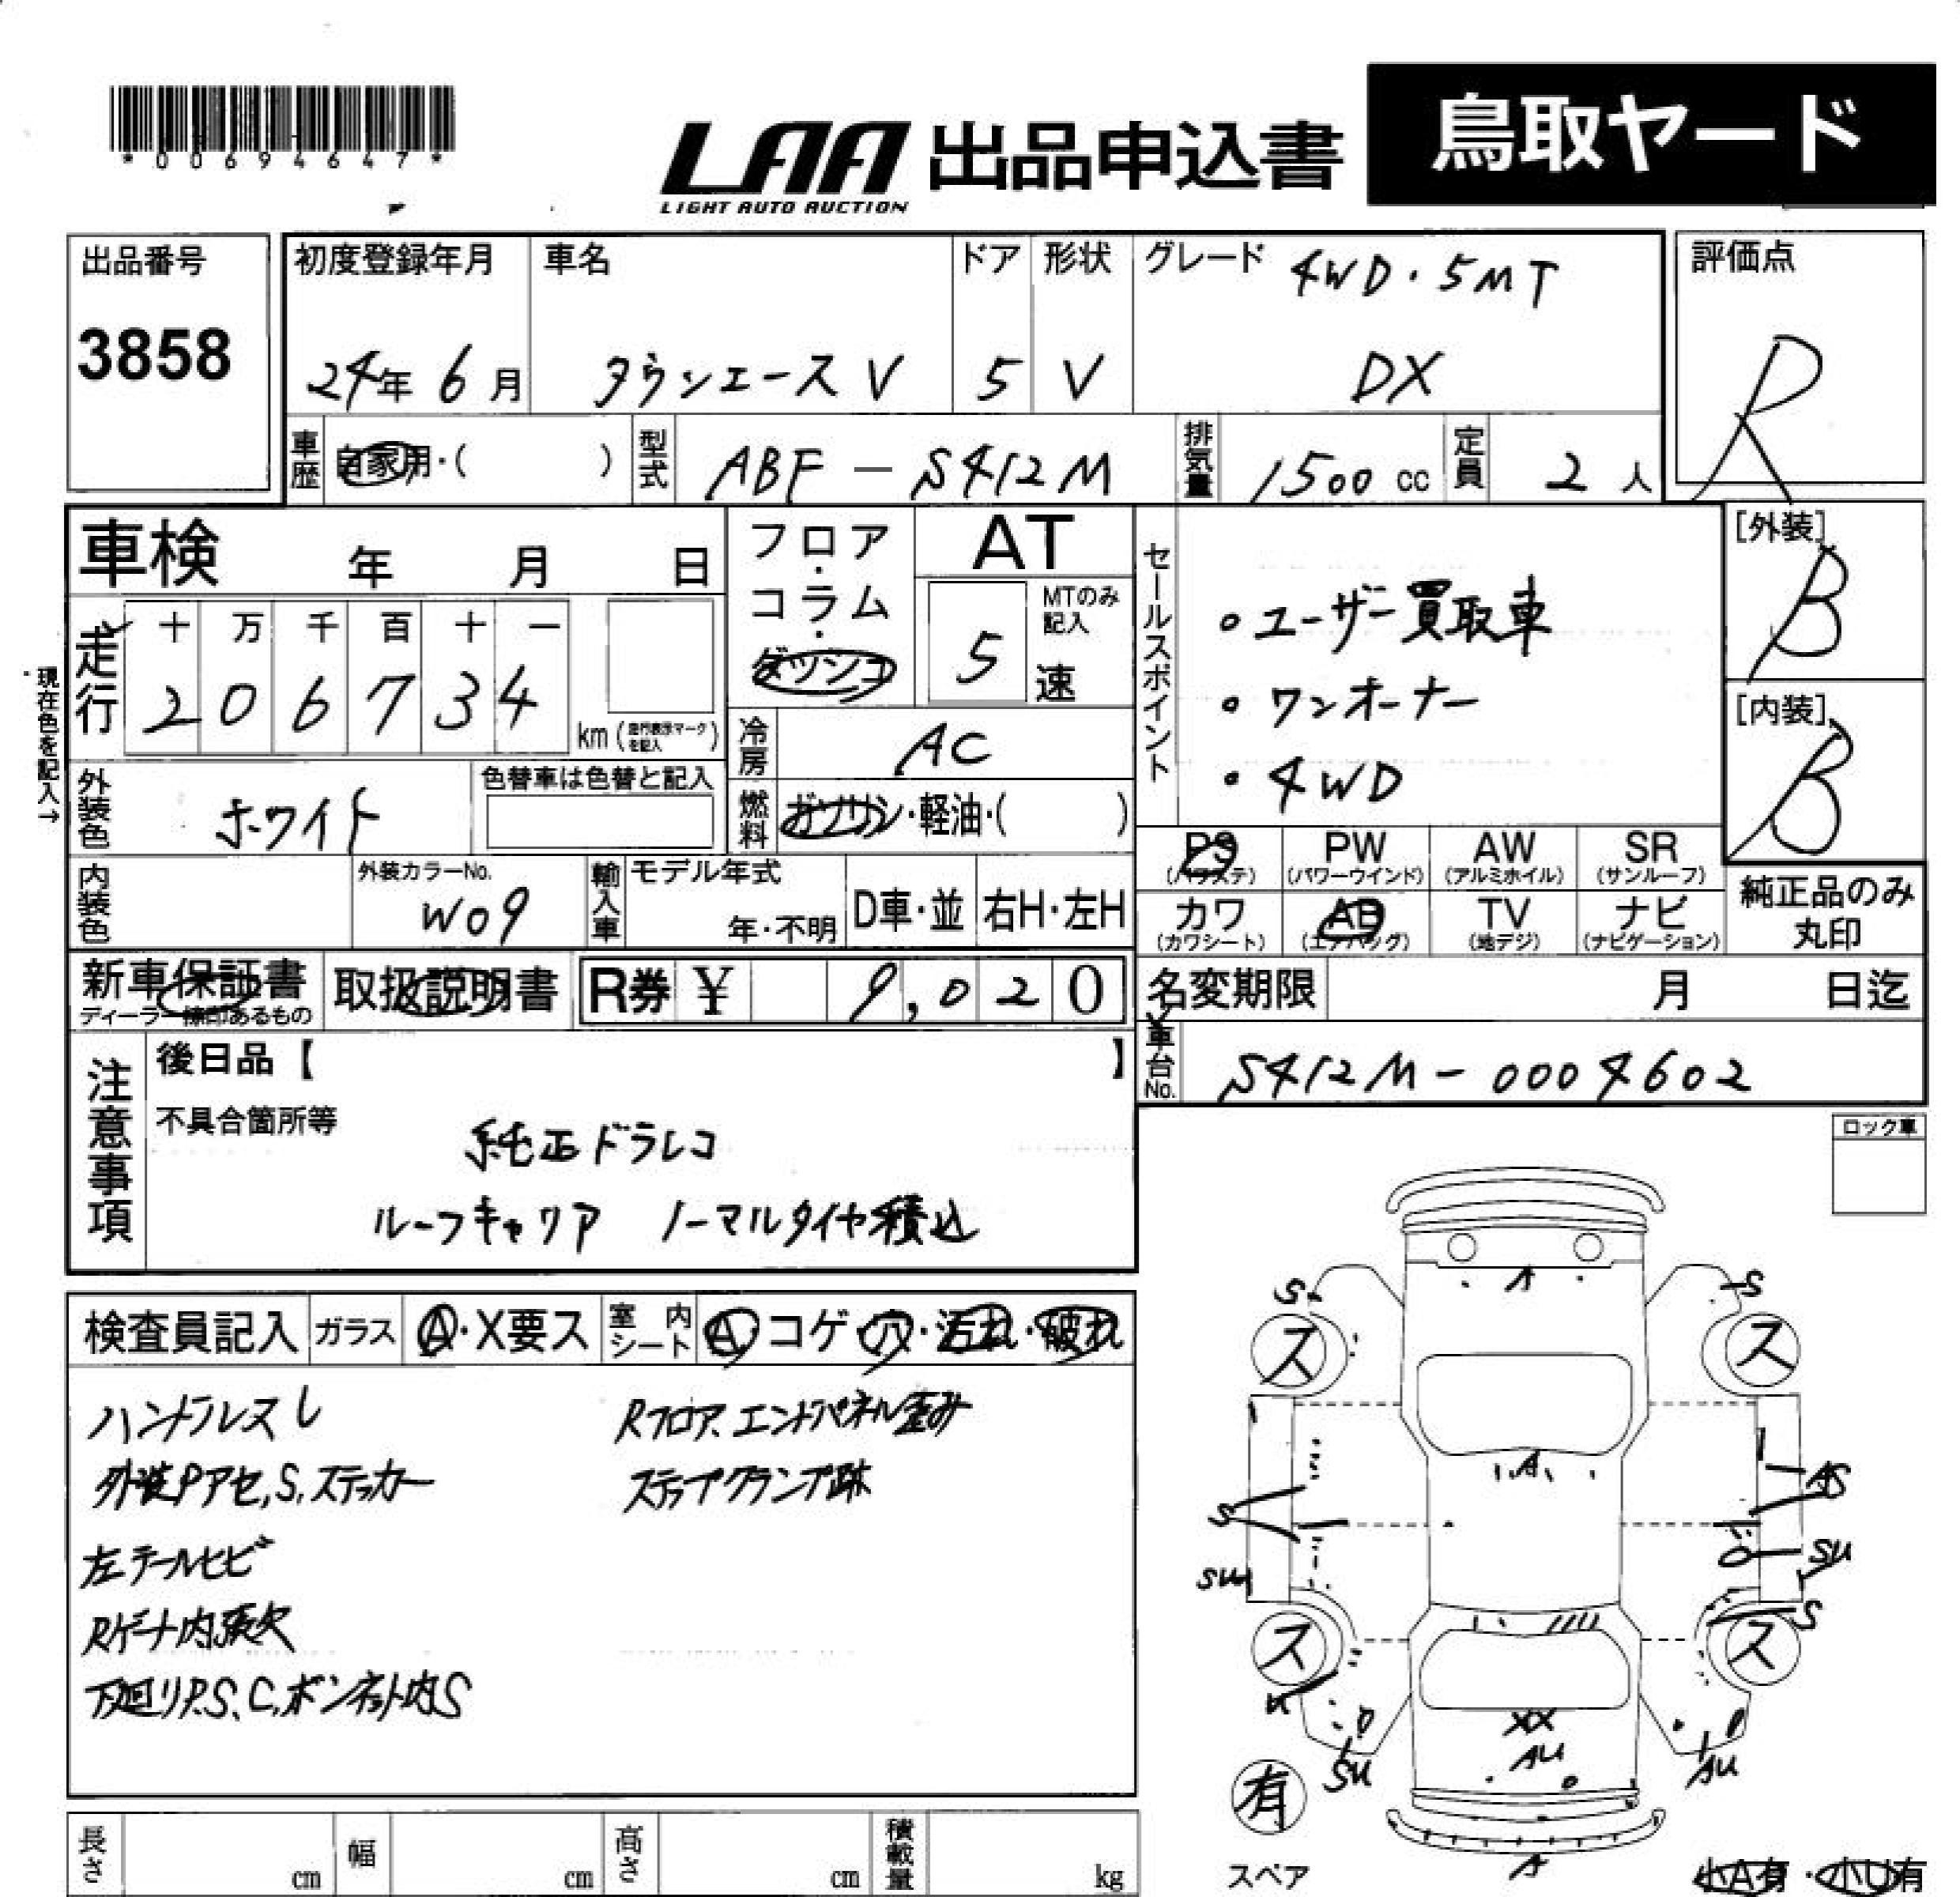 *00694647*
LAA 出品申込書 鳥取ヤード
LIGHT AUTO AUCTION
出品番号 初度登録年月 車名 ドア 形状 グレード 4WD・5MT 評価点
3858 24年6月 タウンエースV 5 V DX R
車歴 自家用・( ) 型式 ABF-S412M 排気量 1500cc 定員 2人
車検 年 月 日 フロア・コラム・ダッシュ AT セールスポイント [外装] B
MTのみ記入 5速
・ユーザー買取車
・ワンオーナー
・4WD
走行 十 万 千 百 十 一
2 0 6 7 3 4 km(走行表示マークを記入)
[内装] B
現在色を記入→
冷房 AC
外装色 ホワイト 色替車は色替と記入 燃料 ガソリン・軽油・( )
PS (パワステ) PW (パワーウインド) AW (アルミホイル) SR (サンルーフ)
内装色 外装カラーNo. W09 輸入車 モデル年式 年・不明 D車・並 右H・左H
カワ (カワシート) AB (エアバッグ) TV (地デジ) ナビ (ナビゲーション) 純正品のみ丸印
新車保証書 取扱説明書 R券 ¥ 9,020 名変期限 月 日迄
ディーラー検印あるもの
車台No. S412M-0004602
注意事項 後日品【 】
不具合箇所等
純正ドラレコ
ルーフキャリア ノーマルタイヤ積込
ロック車
検査員記入 ガラス A・X要ス 室内シート A・コゲ・穴・汚れ・破れ
ハンドルスレ Rフロア、エンドパネル歪み
外装Pアセ,S,ステッカー ステップクランプ跡
左テールヒビ
Rゲート内張欠
下廻りP.S,C,ボンネット内S
A
S S
ス ス
A
S AS
SU SU
S
ス ス
U
XX
AU
SU AU
有
A
スペア 小A有・小U有
長さ cm 幅 cm 高さ cm 積載量 kg